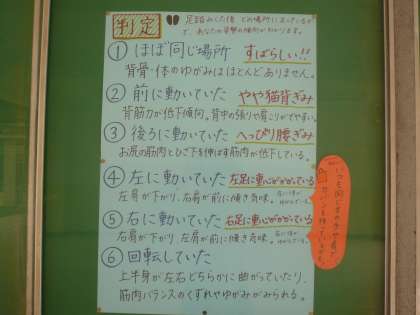 判定
足踏みした後 どの場所に立っているか
で、あなたの姿勢の傾向がわかります。
① ほぼ同じ場所 すばらしい!!
背骨・体のゆがみはほとんどありません。
② 前に動いていた やや猫背ぎみ
背筋力が低下傾向。背中の張りや肩こりがでやすい。
③ 後ろに動いていた へっぴり腰ぎみ
お尻の筋肉とひざ下を伸ばす筋肉が低下している。
④ 左に動いていた 左足に重心がかかっている
左肩が下がり、右肩が前に傾き気味。
⑤ 右に動いていた 右足に重心がかかっている
右肩が下がり、左肩が前に傾き気味。
⑥ 回転していた
上半身が左右どちらかに曲がっていたり、
筋肉バランスのくずれやゆがみがみられる。
いつも同じ方の手や肩で
カバンを持っていませんか